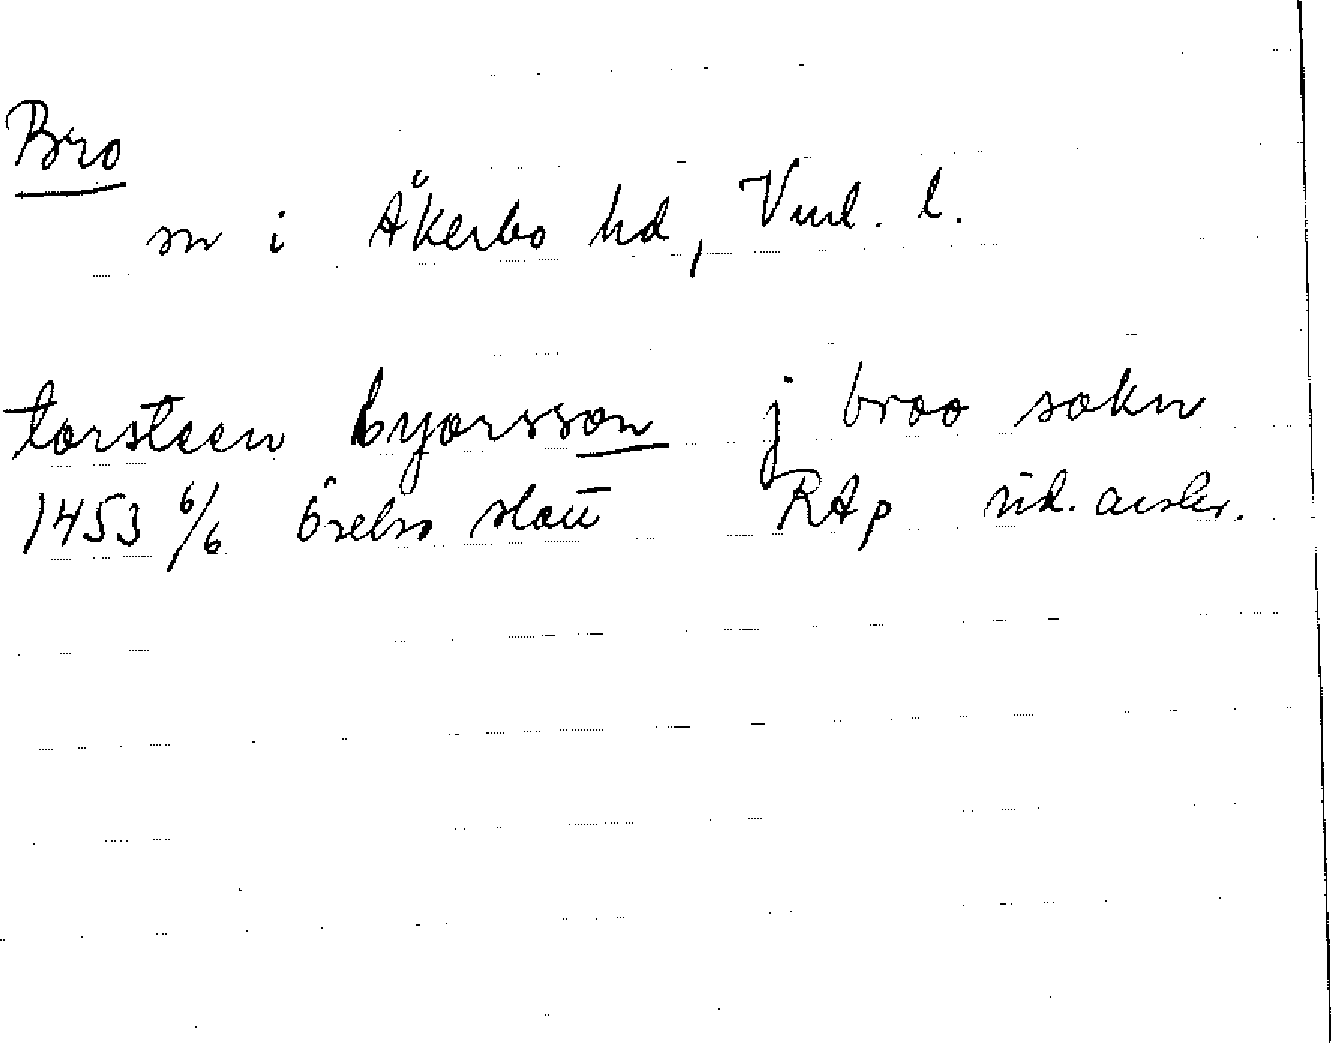 Bro
sn i Åkerbo hd, Vml. l.
torsteen byorsson j broo sokn
1453 6/6 Örebro slott RAp vid. avskr.